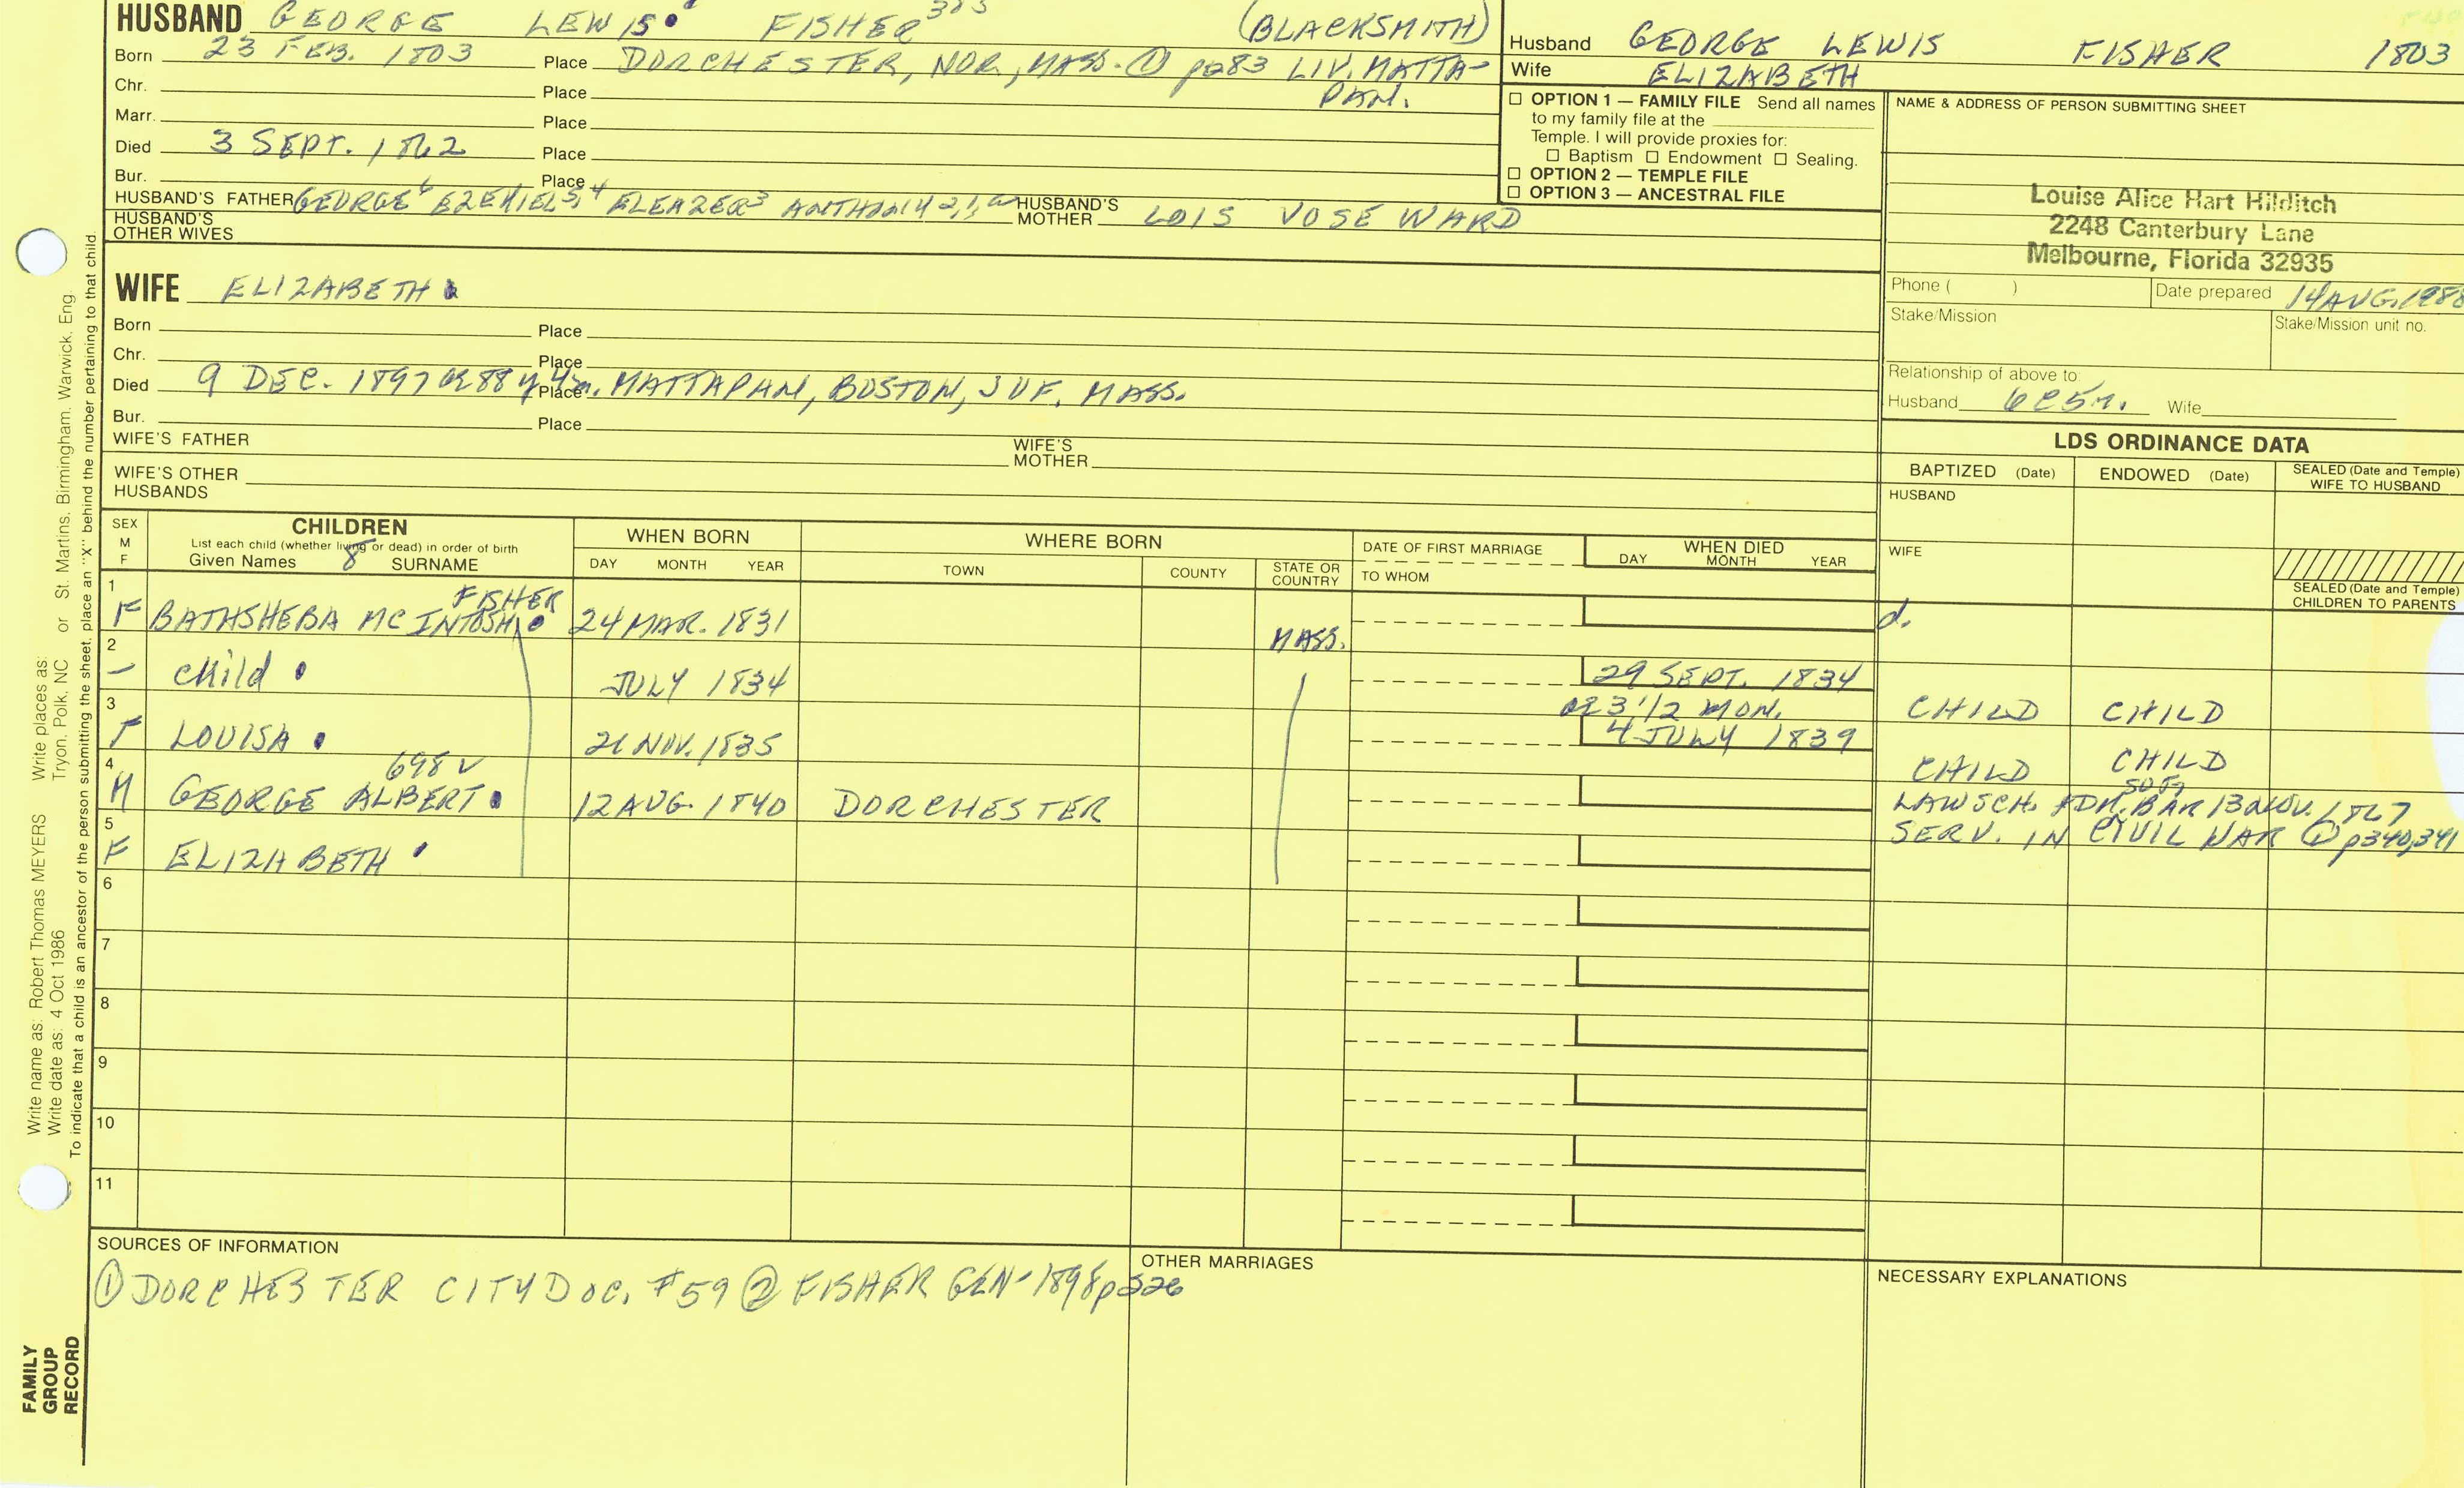 HUSBAND GEORGE LEWIS FISHER (BLACKSMITH)
Born 23 FEB. 1803 Place DORCHESTER, NOR., MASS. ① p283 LIV. MATTA-
PAN.
Chr. Place
Marr. Place
Died 3 SEPT. 1862 Place
Bur. Place
HUSBAND'S FATHER GEORGE6 EZEKIEL5,4 ELEAZER3 ANTHONY2,1 HUSBAND'S MOTHER LOIS VOSE WARD
HUSBAND'S OTHER WIVES
Husband GEORGE LEWIS FISHER 1803
Wife ELIZABETH
☐ OPTION 1 — FAMILY FILE Send all names
to my family file at the
Temple. I will provide proxies for:
☐ Baptism ☐ Endowment ☐ Sealing.
☐ OPTION 2 — TEMPLE FILE
☐ OPTION 3 — ANCESTRAL FILE
NAME & ADDRESS OF PERSON SUBMITTING SHEET
Louise Alice Hart Hilditch
2248 Canterbury Lane
Melbourne, Florida 32935
Phone ( )
Date prepared 14 AUG. 1988
Stake/Mission
Stake/Mission unit no.
Relationship of above to
Husband 6C5r. Wife
WIFE ELIZABETH
Born Place
Chr. Place
Died 9 DEC. 1897 ae 88y 4m. Place MATTAPAN, BOSTON, SUF. MASS.
Bur. Place
WIFE'S FATHER WIFE'S MOTHER
WIFE'S OTHER HUSBANDS
LDS ORDINANCE DATA
BAPTIZED (Date) ENDOWED (Date) SEALED (Date and Temple)
WIFE TO HUSBAND
HUSBAND
WIFE
SEALED (Date and Temple)
CHILDREN TO PARENTS
SEX
M
F
CHILDREN
List each child (whether living or dead) in order of birth
Given Names 8 SURNAME
WHEN BORN
DAY MONTH YEAR
WHERE BORN
TOWN COUNTY STATE OR COUNTRY
DATE OF FIRST MARRIAGE
TO WHOM
WHEN DIED
DAY MONTH YEAR
1
FISHER
F BATHSHEBA MC INTOSH 24 MAR. 1831 MASS. d.
2
— child JULY 1834 29 SEPT. 1834
ae 3 1/2 MON. CHILD CHILD
3
F LOUISA 21 NOV. 1835 4 JULY 1839 CHILD CHILD
4
698 v
M GEORGE ALBERT 12 AUG. 1840 DORCHESTER
LAW SCH. ADM. BAR 13 NOV. 1867
SERV. IN CIVIL WAR ① p340,341
5
F ELIZABETH
6
7
8
9
10
11
SOURCES OF INFORMATION
① DORCHESTER CITY DOC. #59 ② FISHER GEN-1898 p326
OTHER MARRIAGES
NECESSARY EXPLANATIONS
Write name as: Robert Thomas MEYERS Write places as: St. Martins, Birmingham, Warwick, Eng.
Write date as: 4 Oct 1986 Tryon, Polk, NC or
To indicate that a child is an ancestor of the person submitting the sheet, place an "X" behind the number pertaining to that child.
FAMILY
GROUP
RECORD